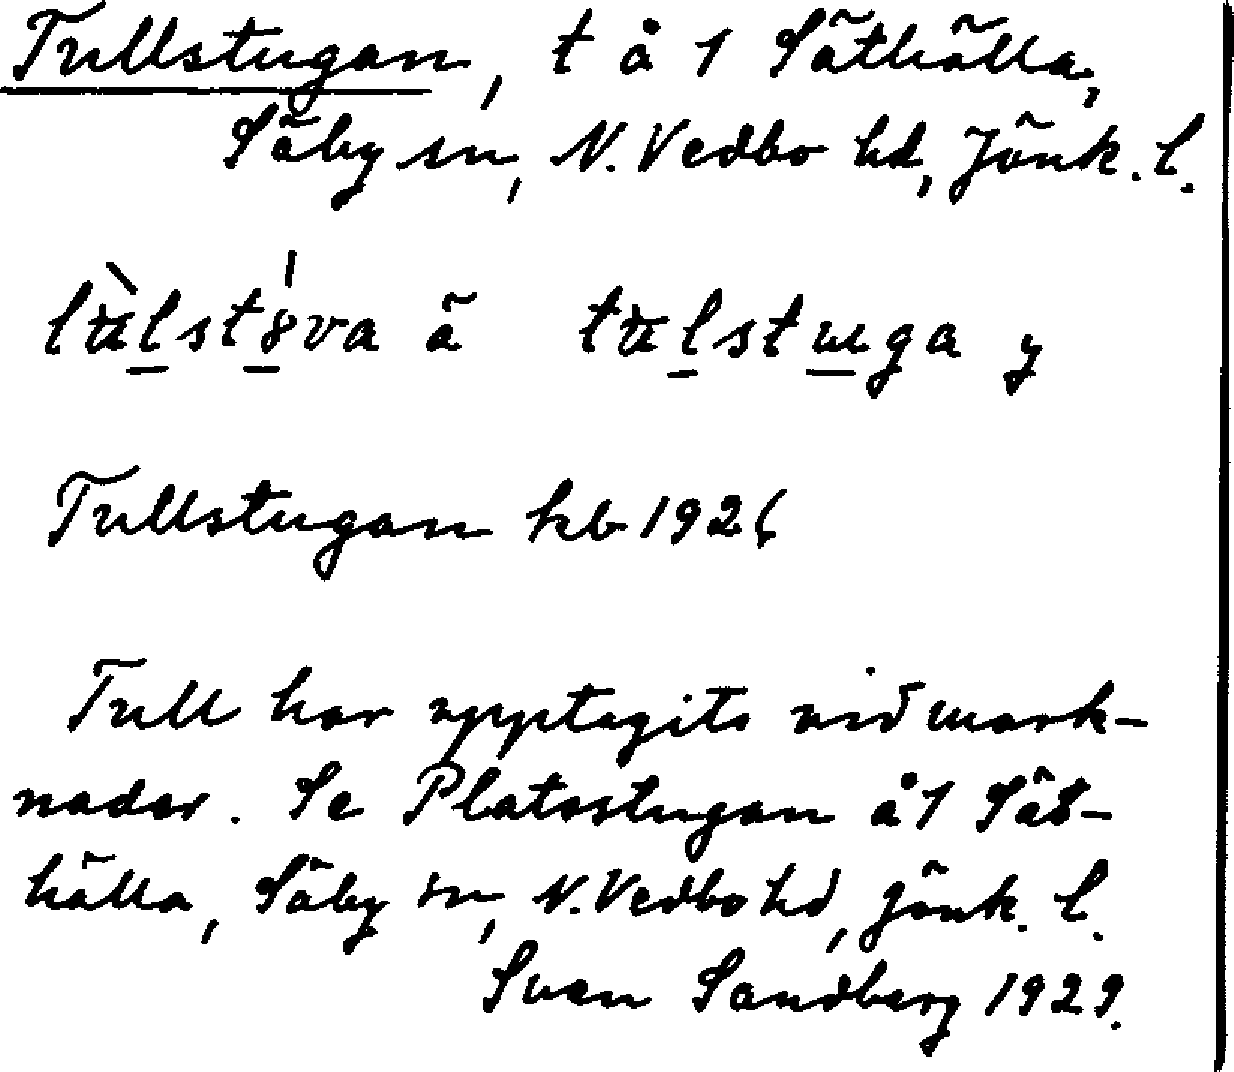 Tullstugan, t å 1 Säthälla,
Säby sn, N. Vedbo hd, Jönk. l.
ä y
Tullstugan hb 1926
Tull har upptagits vid mark-
nader. Se Platsstugan å 1 Sät-
hälla, Säby sn, N. Vedbo hd, Jönk. l.
Sven Sandberg 1929.